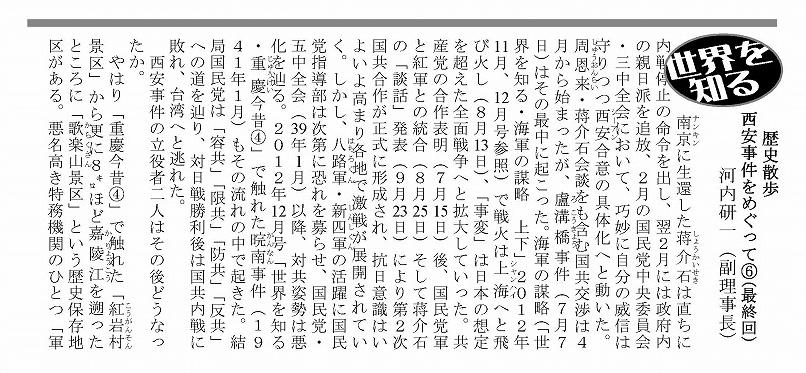 世界を
知る
歴史散歩
西安事件をめぐって⑥(最終回)
河内研一(副理事長)
南京に生還した蒋介石は直ちに
内戦停止の命令を出し、翌2月には政府内
の親日派を追放、2月の国民党中央委員会
・三中全会において、巧妙に自分の威信は
守りつつ西安合意の具体化へと動いた。
周恩来・蒋介石会談をも含む国共交渉は4
月から始まったが、盧溝橋事件(7月7
日)はその最中に起こった。海軍の謀略(世
界を知る・海軍の謀略 上下」2012年
11月、12月号参照)で戦火は上海へと飛
び火し(8月13日)、「事変」は日本の想定
を超えた全面戦争へと拡大していった。共
産党の合作表明(7月15日)後、国民党軍
と紅軍との統合(8月25日)そして蒋介石
の「談話」発表(9月23日)により第2次
国共合作が正式に形成され、抗日意識はい
よいよ高まり各地で激戦が展開されてい
く。しかし、八路軍・新四軍の活躍に国民
党指導部は次第に恐れを募らせ、国民党・
五中全会(39年1月)以降、対共姿勢は悪
化を辿る。2012年12月号「世界を知る
・重慶今昔④」で触れた皖南事件(19
41年1月)もその流れの中で起きた。結
局国民党は「容共」「限共」「防共」「反共」
への道を辿り、対日戦勝利後は国共内戦に
敗れ、台湾へと逃れた。
西安事件の立役者二人はその後どうなっ
たか。
やはり「重慶今昔④」で触れた「紅岩村
景区」から更に8㌔ほど嘉陵江を遡った
ところに「歌楽山景区」という歴史保存地
区がある。悪名高き特務機関のひとつ「軍